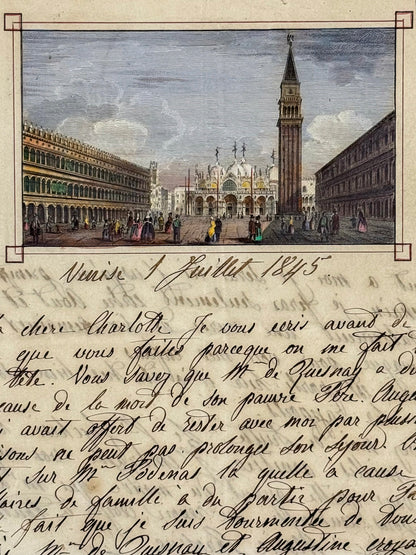 Venise 1 Juillet 1845
chere Charlotte Je vous ecris avant de
que vous faites parceque on me fait
tête. Vous savez que Mme de Quesnay a du
cause de la mort de son pauvre Père. Augu
avait offert de rester avec moi par
sons ne peut pas prolonger son sejour.
sur Mme Podenas la quelle a cause
aires de famille a du partir pour
fait que je suis tourmentée de
Mme de Quesnay et Augustine croyo